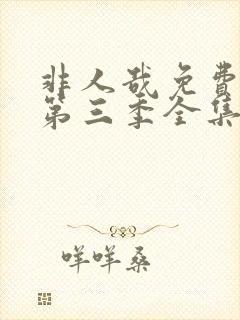 非人哉免費
第三季全集
咩咩桑